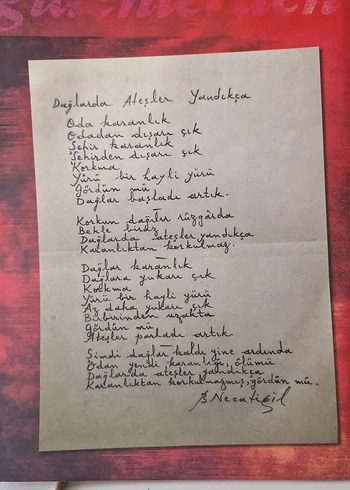 Dağlarda Ateşler Yandıkça
Oda karanlık
Odadan dışarı çık
Şehir karanlık
Şehirden dışarı çık
Korkma
Yürü bir hayli yürü
Gördün mü
Dağlar başladı artık.
Korkun dağılır rüzgârda
Bekle biraz
Dağlarda ateşler yandıkça
Karanlıktan korkulmaz.
Dağlar karanlık
Dağlara yukarı çık
Korkma
Yürü bir hayli yürü
Az daha yukarı çık
Birbirinden uzakta
Gördün mü
Ateşler parladı artık
Şimdi dağlar kaldı yine ardında
Odan yendi karanlığı, ölümü
Dağlarda ateşler yandıkça
Karanlıktan korkulmazmış, gördün mü.
B Necatigil